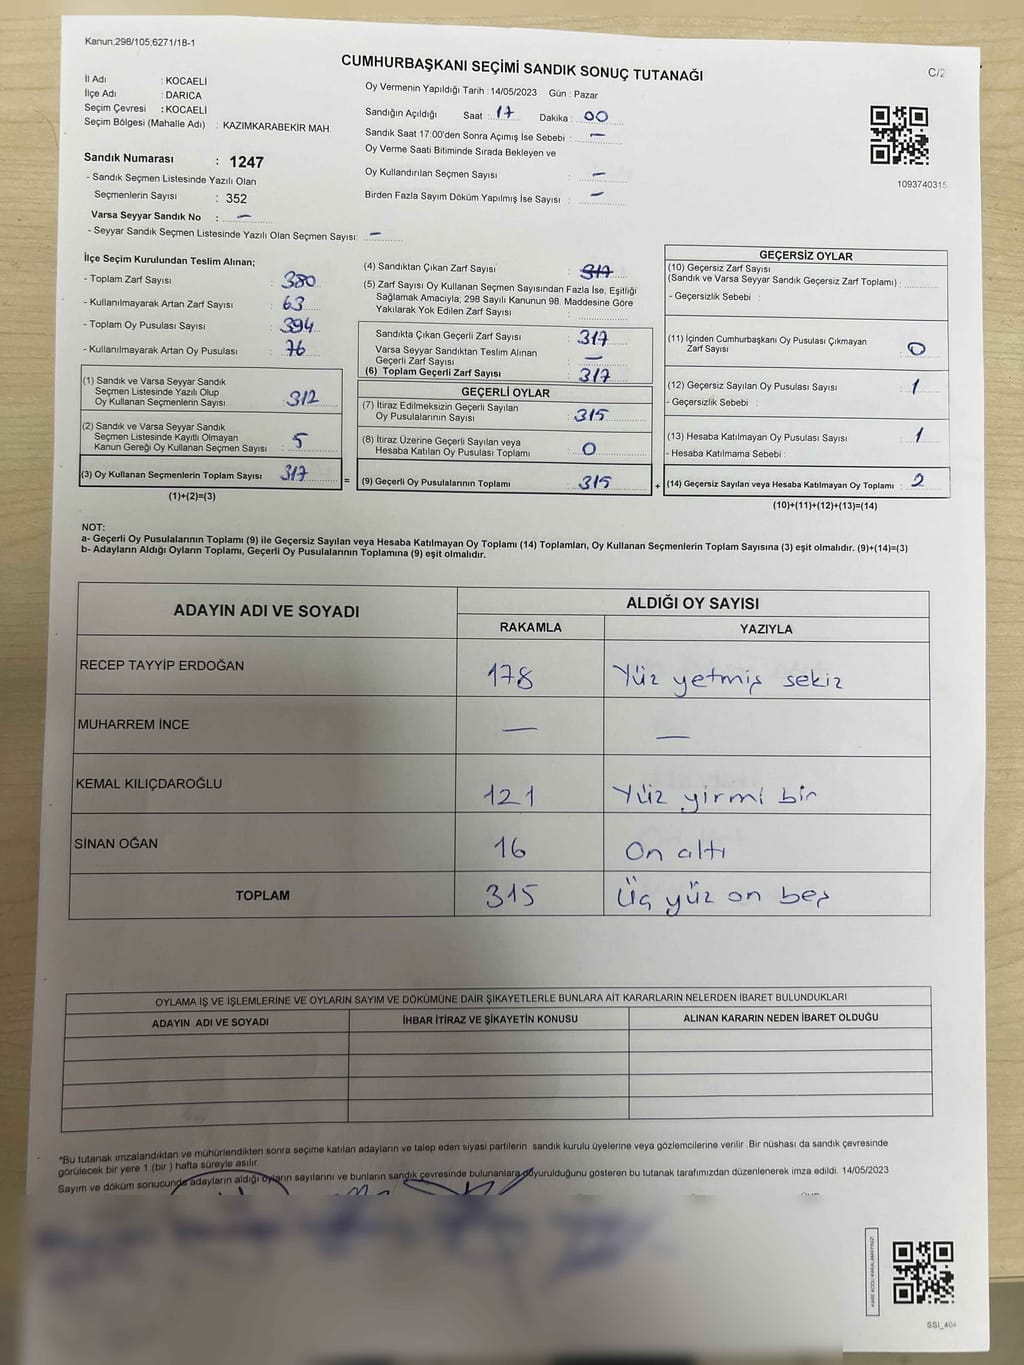 Kanun;298/105;6271/18-1
CUMHURBAŞKANI SEÇİMİ SANDIK SONUÇ TUTANAĞI
C/2
İl Adı : KOCAELİ
İlçe Adı : DARICA
Seçim Çevresi : KOCAELİ
Seçim Bölgesi (Mahalle Adı) : KAZIMKARABEKİR MAH.
Oy Vermenin Yapıldığı Tarih : 14/05/2023 Gün : Pazar
Sandığın Açıldığı Saat : 17 Dakika : 00
Sandık Saat 17:00'den Sonra Açımış İse Sebebi : —
Oy Verme Saati Bitiminde Sırada Bekleyen ve
Oy Kullandırılan Seçmen Sayısı : —
Birden Fazla Sayım Döküm Yapılmış İse Sayısı : —
1093740315
Sandık Numarası : 1247
- Sandık Seçmen Listesinde Yazılı Olan
Seçmenlerin Sayısı : 352
Varsa Seyyar Sandık No : —
- Seyyar Sandık Seçmen Listesinde Yazılı Olan Seçmen Sayısı: —
İlçe Seçim Kurulundan Teslim Alınan;
- Toplam Zarf Sayısı : 380
- Kullanılmayarak Artan Zarf Sayısı : 63
- Toplam Oy Pusulası Sayısı : 394
- Kullanılmayarak Artan Oy Pusulası : 76
(1) Sandık ve Varsa Seyyar Sandık
Seçmen Listesinde Yazılı Olup
Oy Kullanan Seçmenlerin Sayısı : 312
(2) Sandık ve Varsa Seyyar Sandık
Seçmen Listesinde Kayıtlı Olmayan
Kanun Gereği Oy Kullanan Seçmen Sayısı : 5
(3) Oy Kullanan Seçmenlerin Toplam Sayısı : 317
(1)+(2)=(3)
=
(4) Sandıktan Çıkan Zarf Sayısı : 317
(5) Zarf Sayısı Oy Kullanan Seçmen Sayısından Fazla İse, Eşitliği
Sağlamak Amacıyla; 298 Sayılı Kanunun 98. Maddesine Göre
Yakılarak Yok Edilen Zarf Sayısı :
Sandıkta Çıkan Geçerli Zarf Sayısı : 317
Varsa Seyyar Sandıktan Teslim Alınan
Geçerli Zarf Sayısı : —
(6) Toplam Geçerli Zarf Sayısı : 317
GEÇERLİ OYLAR
(7) İtiraz Edilmeksizin Geçerli Sayılan
Oy Pusulalarının Sayısı : 315
(8) İtiraz Üzerine Geçerli Sayılan veya
Hesaba Katılan Oy Pusulası Toplamı : 0
(9) Geçerli Oy Pusulalarının Toplamı : 315
+
GEÇERSİZ OYLAR
(10) Geçersiz Zarf Sayısı
(Sandık ve Varsa Seyyar Sandık Geçersiz Zarf Toplamı) :
- Geçersizlik Sebebi :
(11) İçinden Cumhurbaşkanı Oy Pusulası Çıkmayan
Zarf Sayısı : 0
(12) Geçersiz Sayılan Oy Pusulası Sayısı : 1
- Geçersizlik Sebebi :
(13) Hesaba Katılmayan Oy Pusulası Sayısı : 1
- Hesaba Katılmama Sebebi :
(14) Geçersiz Sayılan veya Hesaba Katılmayan Oy Toplamı : 2
(10)+(11)+(12)+(13)=(14)
NOT:
a- Geçerli Oy Pusulalarının Toplamı (9) ile Geçersiz Sayılan veya Hesaba Katılmayan Oy Toplamı (14) Toplamları, Oy Kullanan Seçmenlerin Toplam Sayısına (3) eşit olmalıdır. (9)+(14)=(3)
b- Adayların Aldığı Oyların Toplamı, Geçerli Oy Pusulalarının Toplamına (9) eşit olmalıdır.
ADAYIN ADI VE SOYADI ALDIĞI OY SAYISI
RAKAMLA YAZIYLA
RECEP TAYYİP ERDOĞAN 178 Yüz yetmiş sekiz
MUHARREM İNCE — —
KEMAL KILIÇDAROĞLU 121 Yüz yirmi bir
SİNAN OĞAN 16 On altı
TOPLAM 315 Üç yüz on beş
OYLAMA İŞ VE İŞLEMLERİNE VE OYLARIN SAYIM VE DÖKÜMÜNE DAİR ŞİKAYETLERLE BUNLARA AİT KARARLARIN NELERDEN İBARET BULUNDUKLARI
ADAYIN ADI VE SOYADI İHBAR İTİRAZ VE ŞİKAYETİN KONUSU ALINAN KARARIN NEDEN İBARET OLDUĞU
*Bu tutanak imzalandıktan ve mühürlendikten sonra seçime katılan adayların ve talep eden siyasi partilerin sandık kurulu üyelerine veya gözlemcilerine verilir .Bir nüshası da sandık çevresinde
görülecek bir yere 1 (bir ) hafta süreyle asılır.
Sayım ve döküm sonucunda adayların aldığı oyların sayılarını ve bunların sandık çevresinde bulunanlara duyurulduğunu gösteren bu tutanak tarafımızdan düzenlenerek imza edildi. 14/05/2023
KARE KODU KARALAMAYINIZ!
SSİ_404